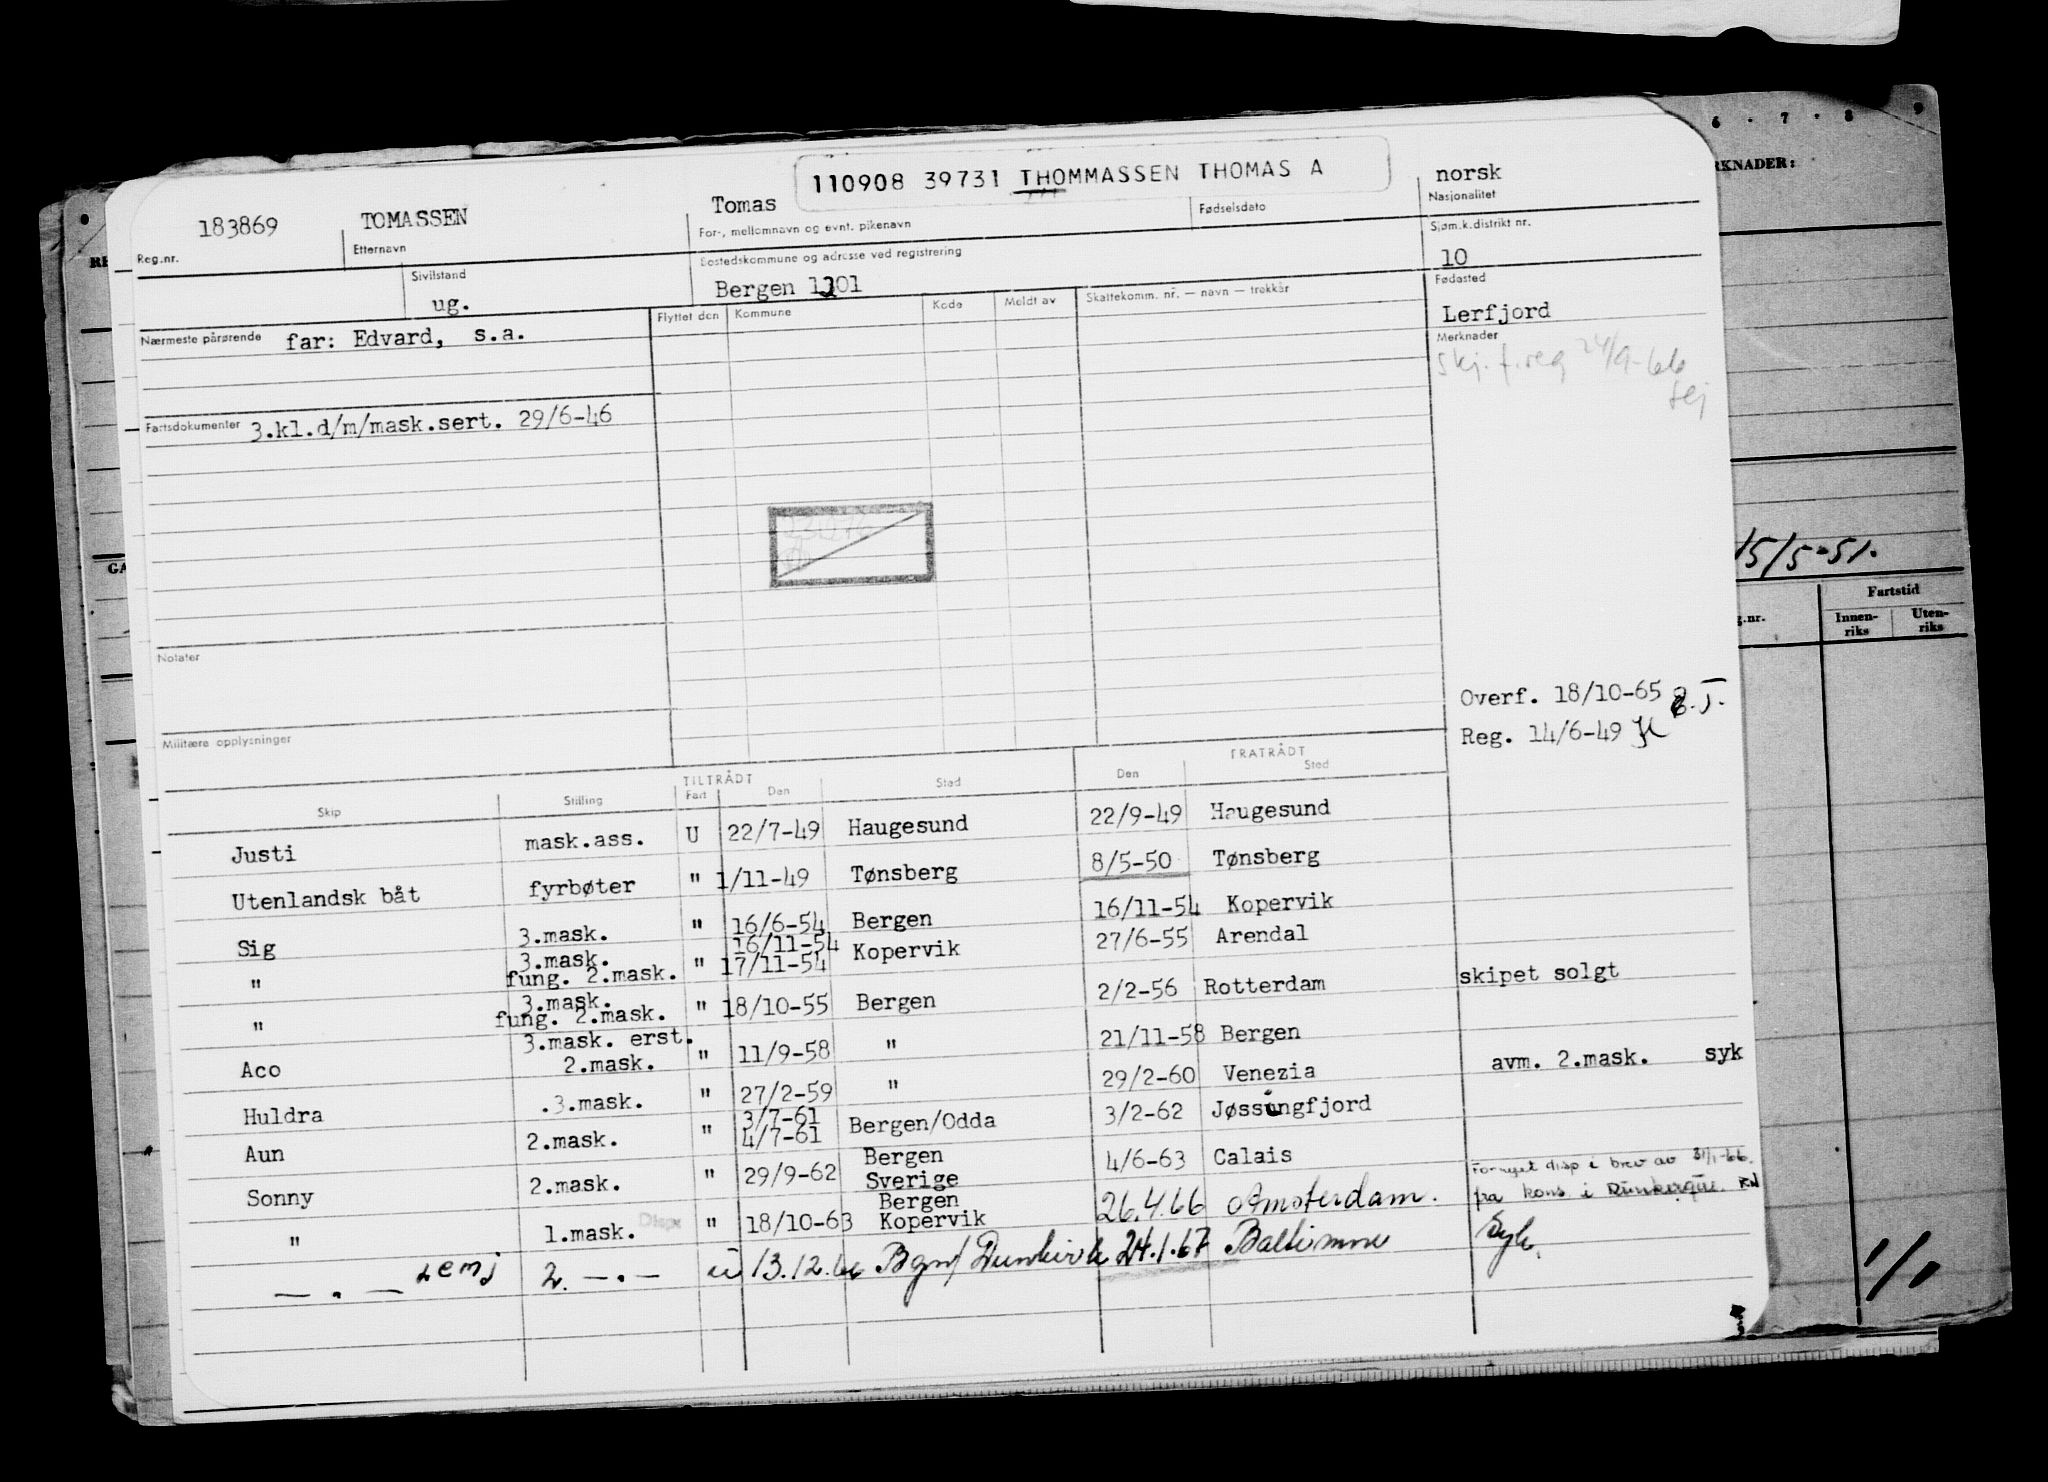 6 . 7 . 8 . 9
RKNADER:
110908 39731 THOMMASSEN THOMAS A
183869 TOMASSEN Tomas norsk
Reg.nr. Etternavn For-, mellomnavn og evnt. pikenavn Fødselsdato Nasjonalitet
Sivilstand Bostedskommune og adresse ved registrering Sjøm.k.distrikt nr.
ug. Bergen 1301 10
Nærmeste pårørende far: Edvard, s.a. Flyttet den Kommune Kode Meldt av Skattekomm. nr. — navn — trekkår Fødested
Lerfjord
Merknader
Skj. f. reg 24/9-66
Fartsdokumenter 3.kl.d/m/mask.sert. 29/6-46
15/5-51.
GA
Fartstid
Innen-riks Uten-riks
Notater
Overf. 18/10-65
Reg. 14/6-49
Militære opplysninger
TILTRÅDT FRATRÅDT
Skip Stilling Fart Den Sted Den Sted
Justi mask.ass. U 22/7-49 Haugesund 22/9-49 Haugesund
Utenlandsk båt fyrbøter " 1/11-49 Tønsberg 8/5-50 Tønsberg
Sig 3.mask. " 16/6-54 Bergen 16/11-54 Kopervik
" 3.mask. 16/11-54 Kopervik 27/6-55 Arendal
fung. 2.mask. " 17/11-54
" 3.mask. " 18/10-55 Bergen 2/2-56 Rotterdam skipet solgt
fung. 2.mask.
Aco 3.mask. erst. " 11/9-58 " 21/11-58 Bergen
2.mask.
Huldra .3.mask. " 27/2-59 " 29/2-60 Venezia avm. 2.mask. syk
Aun 2.mask. " 3/7-61 Bergen/Odda 3/2-62 Jøssingfjord
4/7-61
Sonny 2.mask. " 29/9-62 Bergen 4/6-63 Calais
Sverige
" 1.mask. Disp " 18/10-63 Bergen 26.4.66 Amsterdam. Fornyet disp i brev av 31/1-66.
Kopervik fra kons i Dunkerque. KN
— . — 2. — . — u 13.12.66 Bgn/Dunkirk 24.1.67 Baltimore Syk.
1/1